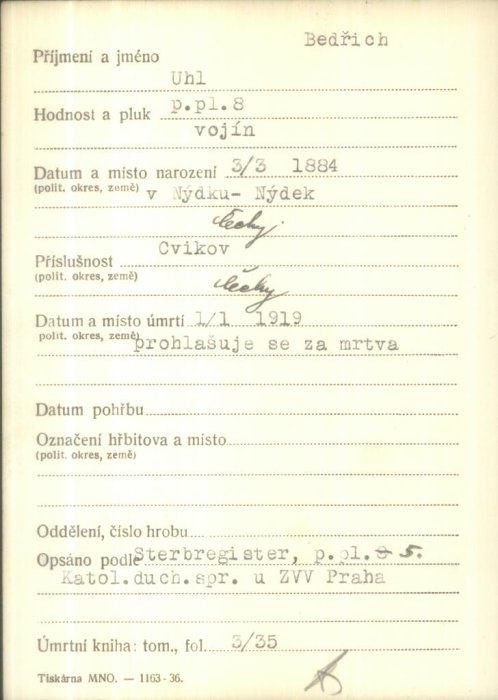 Bedřich
Příjmení a jméno
Uhl
Hodnost a pluk p.pl.8
vojín
Datum a místo narození 3/3 1884
(polit. okres, země) v Nýdku- Nýdek
čechy.
Cvikov
Příslušnost
(polit. okres, země) čechy
Datum a místo úmrtí 1/1 1919
polit. okres, země) prohlašuje se za mrtva
Datum pohřbu
Označení hřbitova a místo
(polit. okres, země)
Oddělení, číslo hrobu
Opsáno podle Sterbregister, p.pl.8 5.
Katol.duch.spr. u ZVV Praha
Úmrtní kniha: tom., fol. 3/35
Tiskárna MNO. — 1163-36.